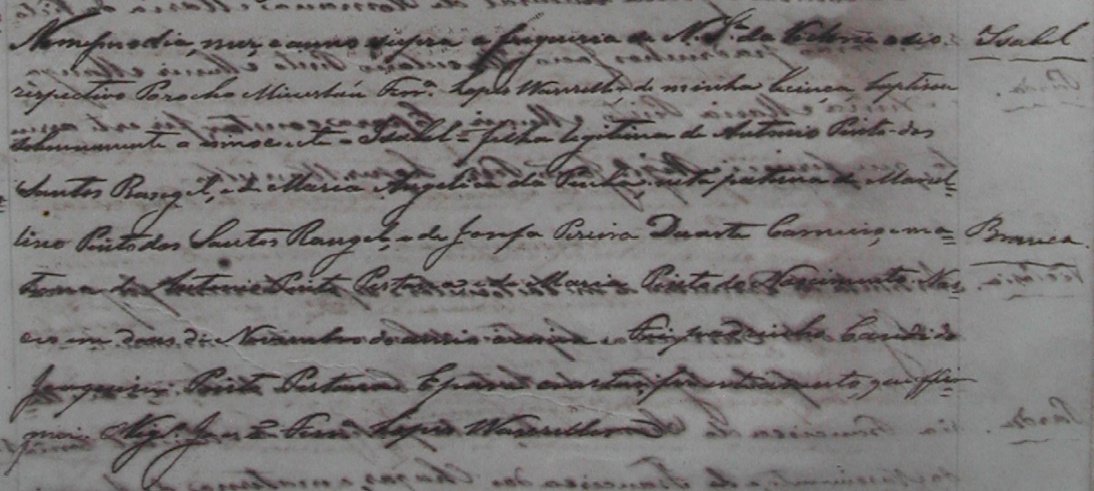 No mesmo dia, mez e anno supra a freguezia de N. Sra. da Victoria o dio
respectivo Parocho Miceslau Ferra. Lopes Wanzeller, de minha licença baptisou
solennemente a innocente = Isabel = filha legitima de Antonio Pinto dos
Santos Rangel, e de Maria Angelica da Penha, neta paterna de Marcel=
lino Pinto dos Santos Rangel, e de Josefa Pereira Duarte Carneiro, e ma=
terna de Antonio Pinto Pestana e de Maria Pinto do Nascimento. Nas
ceo em dous de Novembro do anno Foi padrinho Candido
Joaquim Pinto Pestana E para constar fiz este assento, que assi
gnei. O Vigr. Je Ferra. Lopes Wanzeller
Isabel
Branca